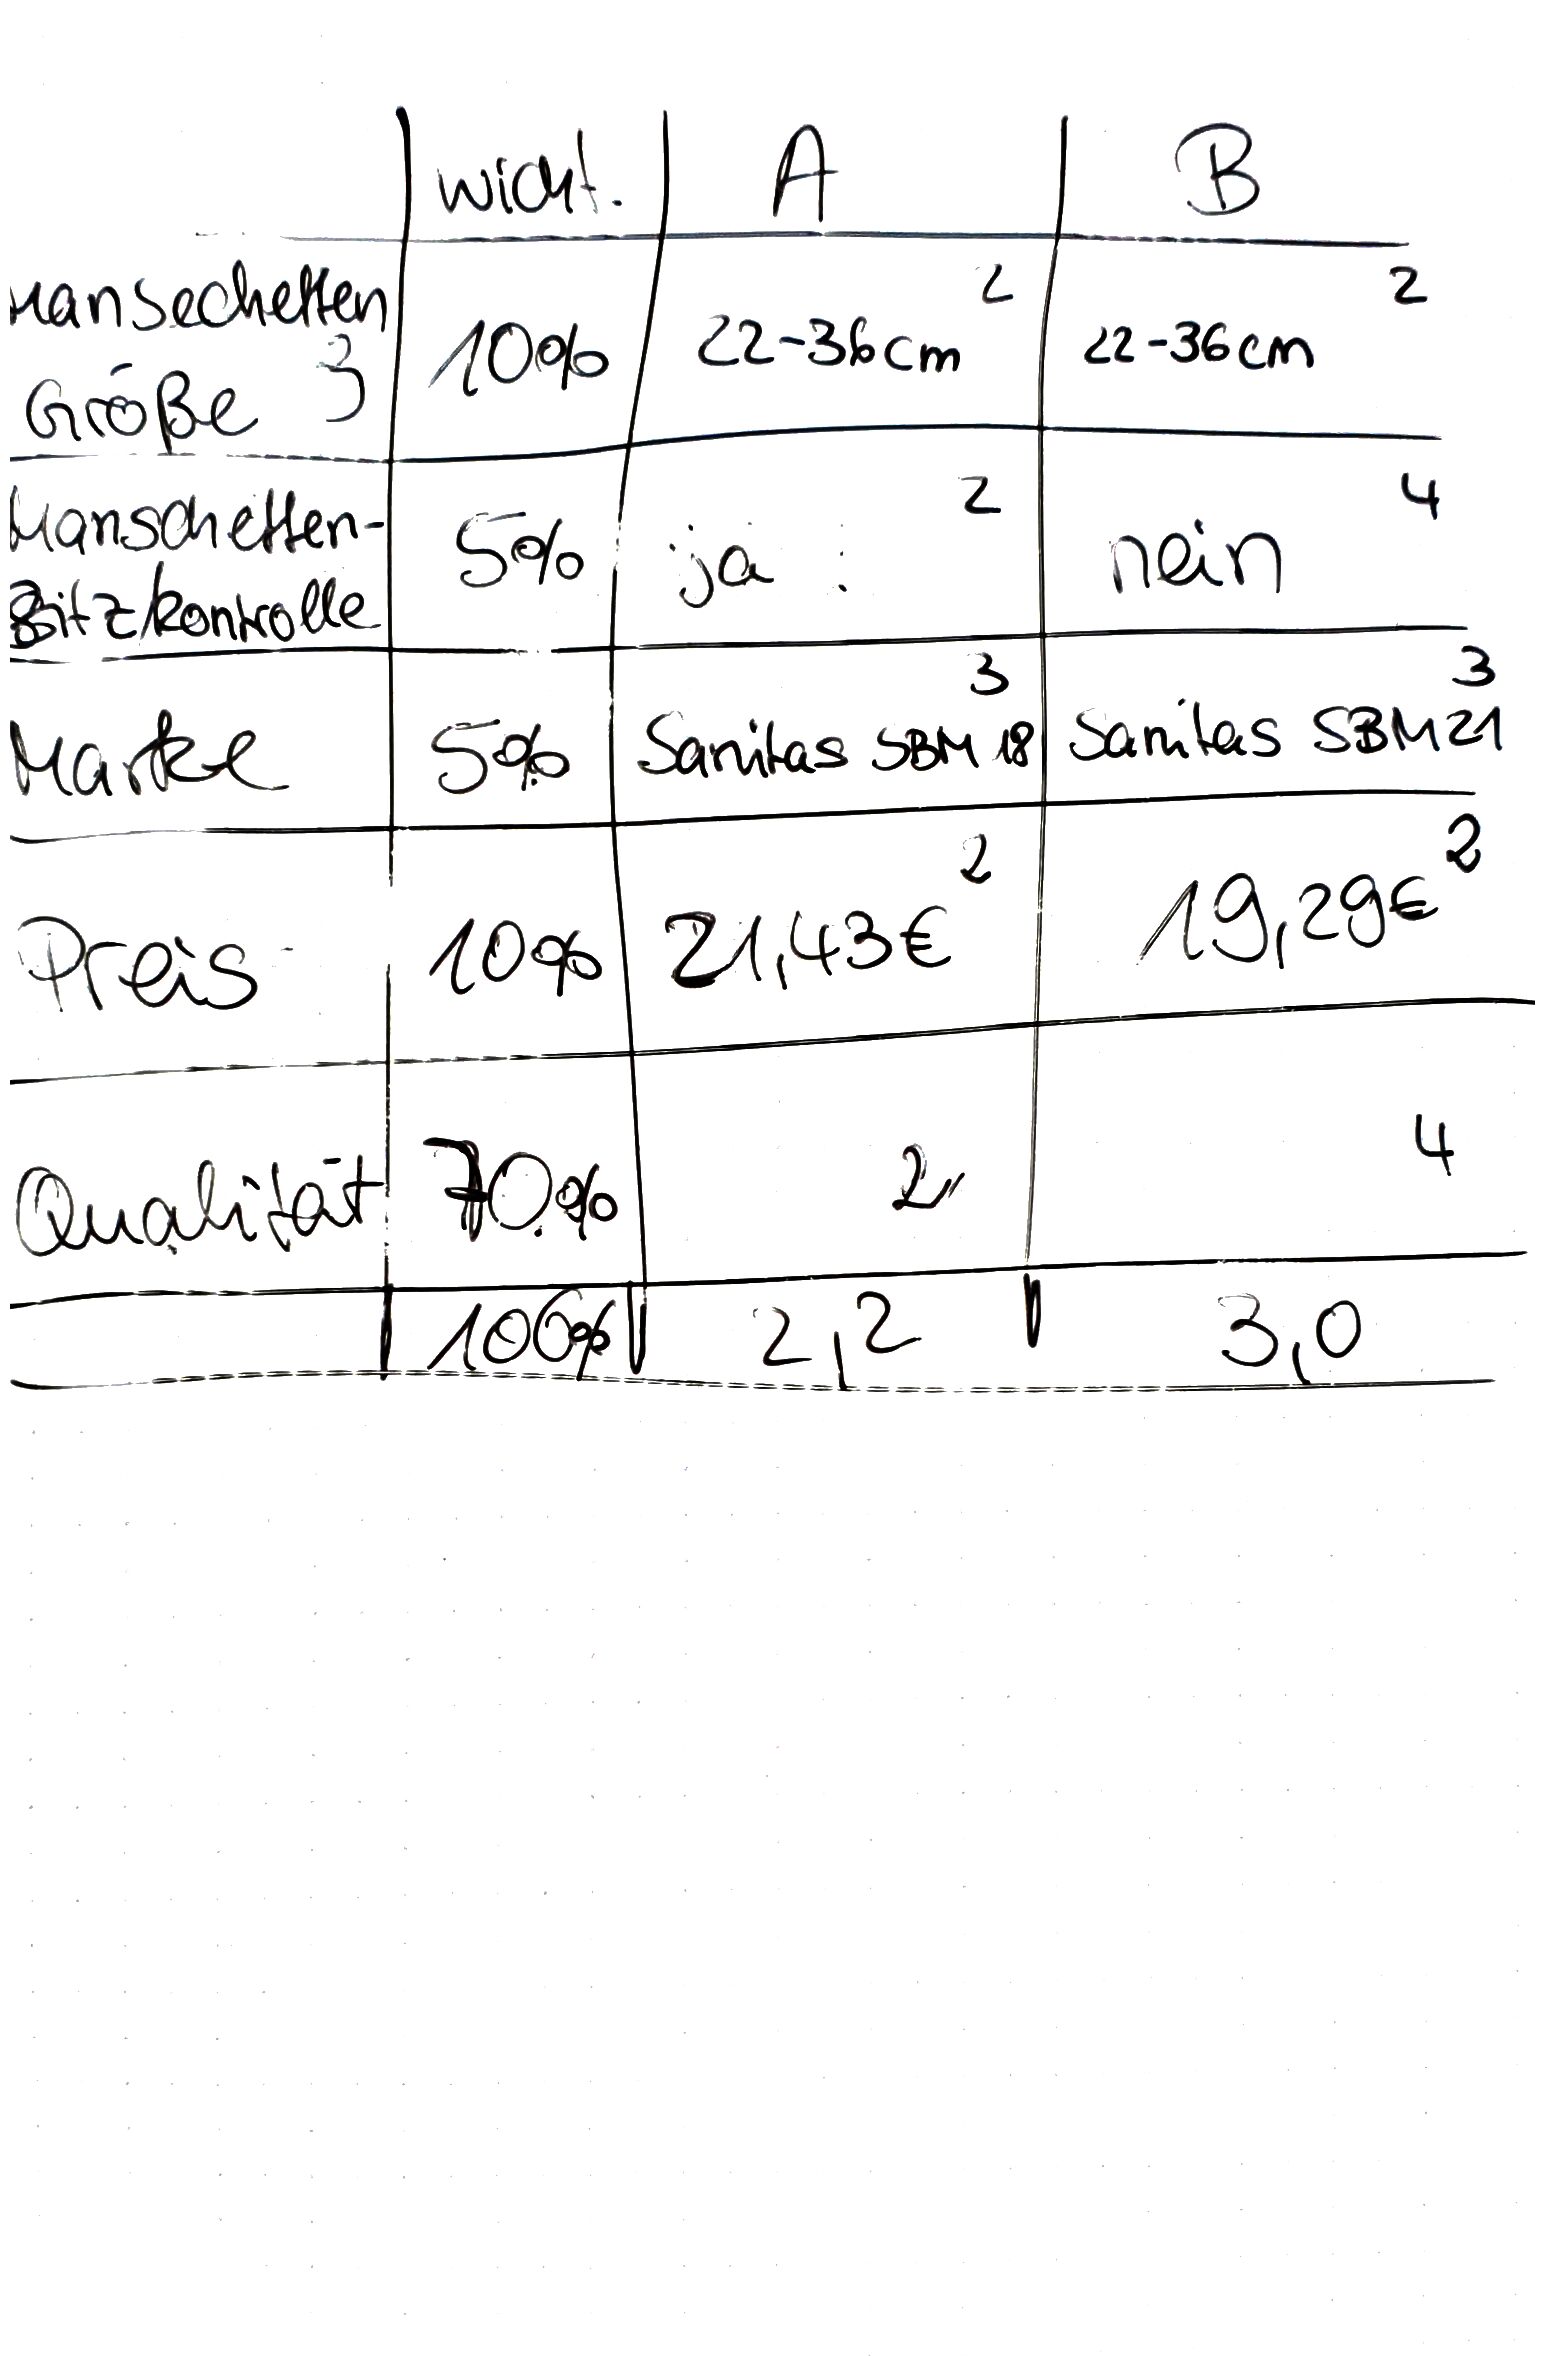 wicht. A B
Mansechetten 2 2
Größe 3 10% 22-36cm 22-36cm
Manschetten- 2 4
sitz/kontrolle 5% ja : nein
3 3
Marke 5% Sanitas SBM 18 Sanitas SBM 21
2 2
Preis 10% 21,43€ 19,29€
4
Qualität 70% 2
100% 2,2 3,0